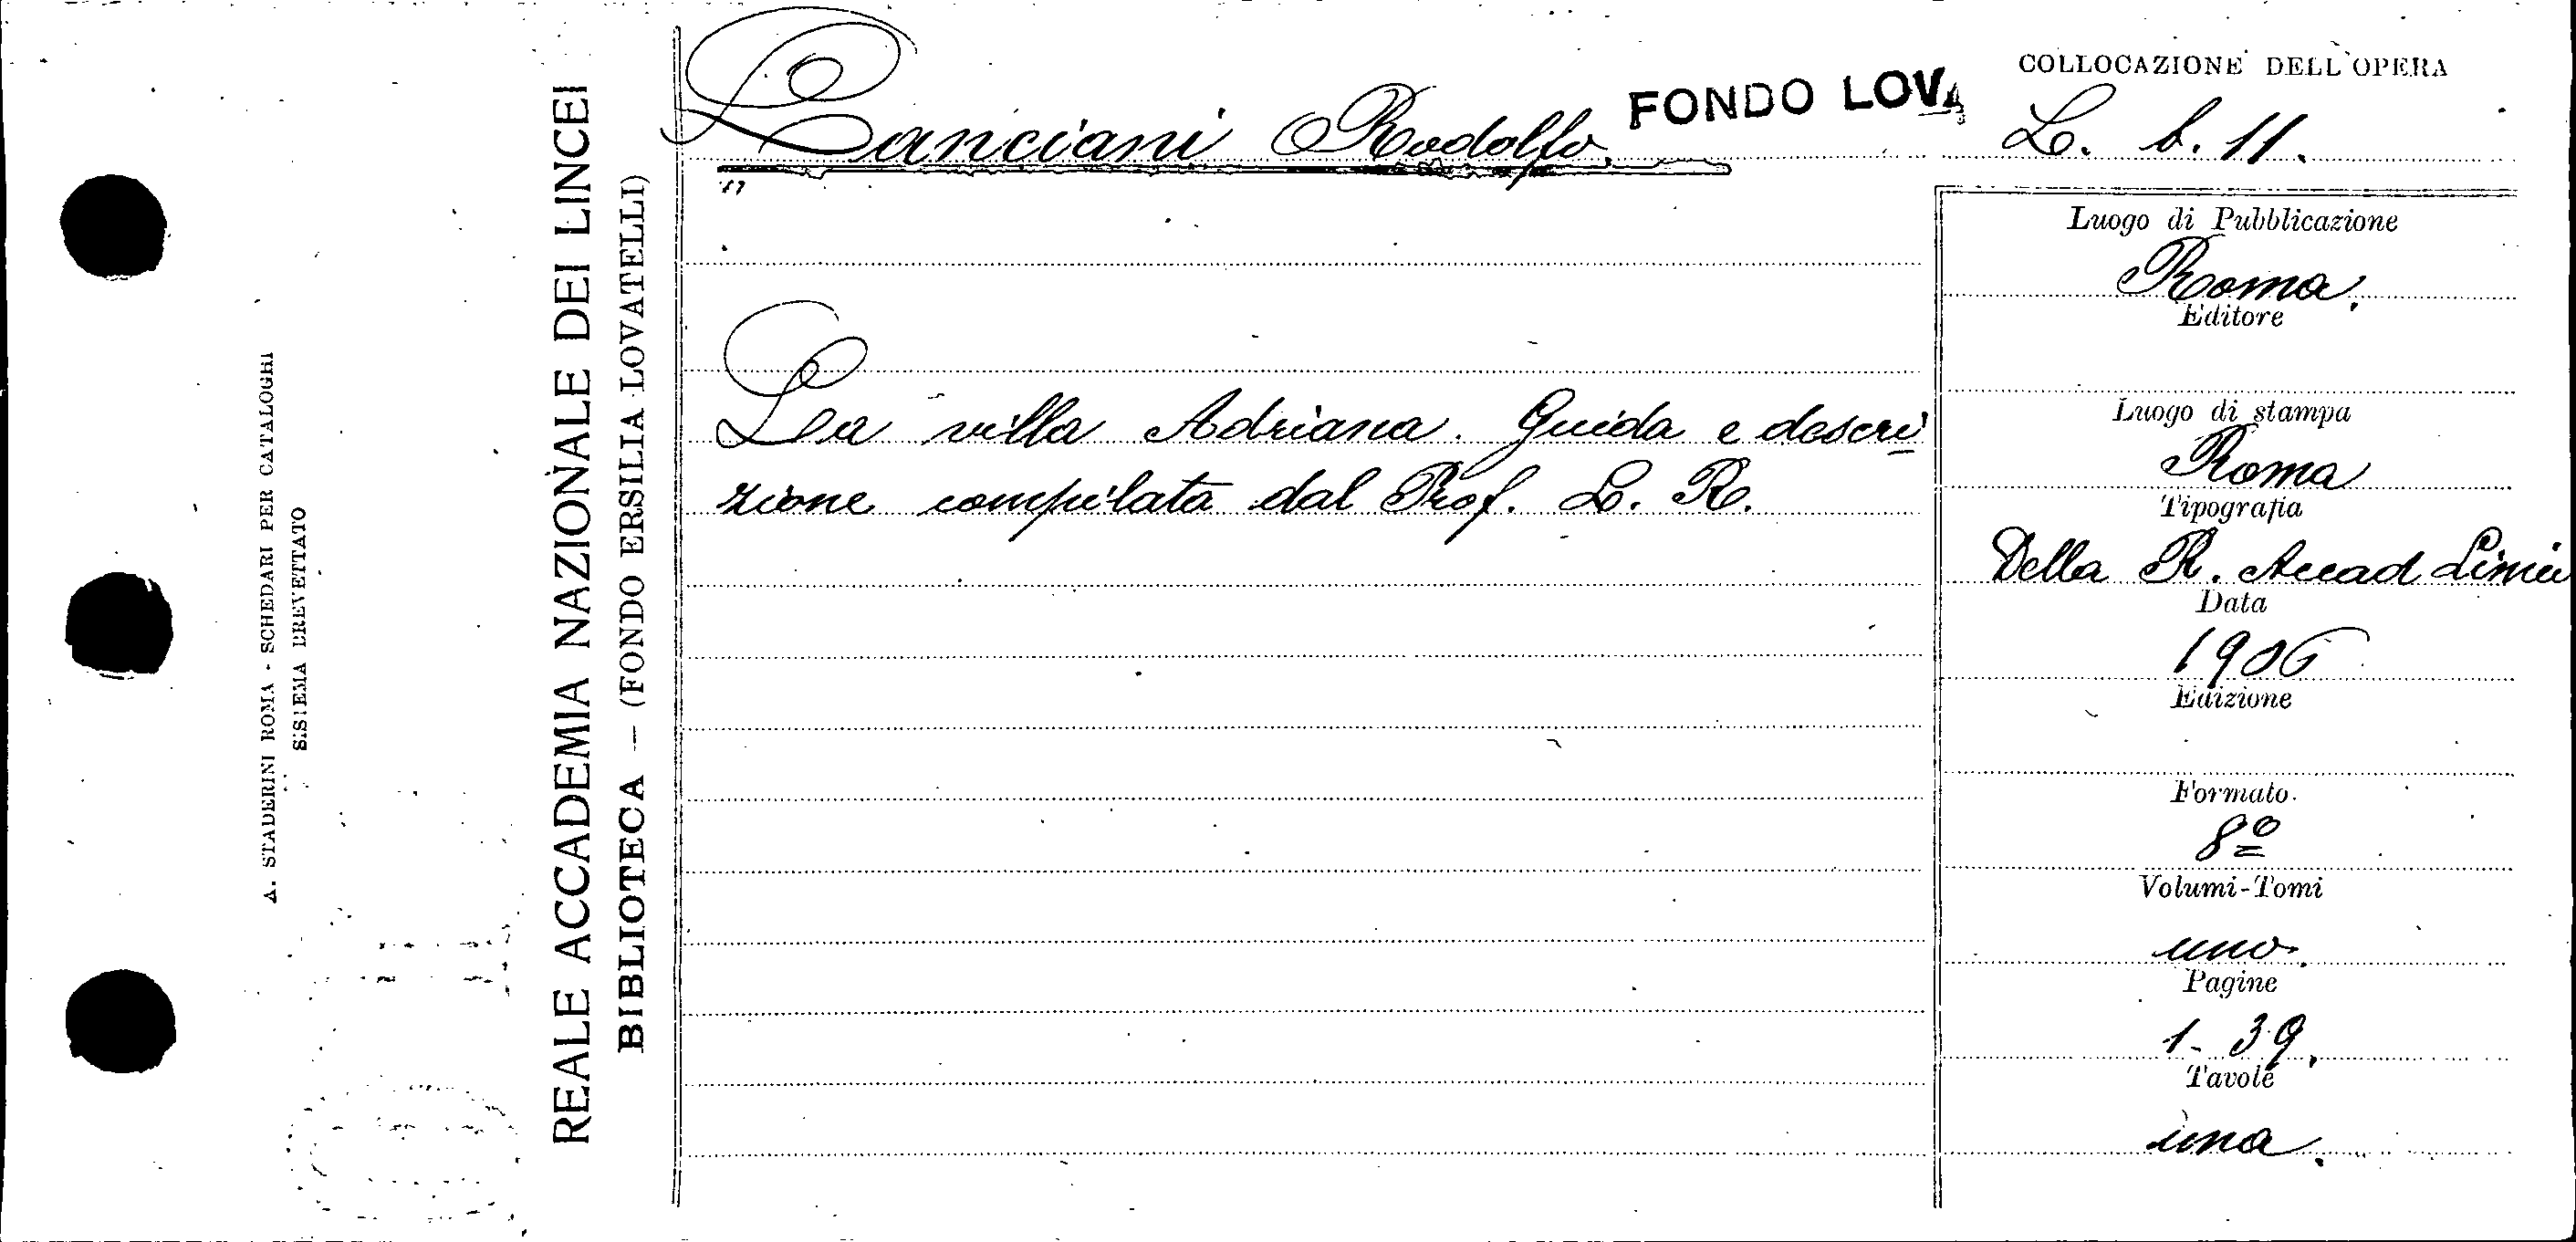 A. STADERINI ROMA - SCHEDARI PER CATALOGHI
SISTEMA BREVETTATO
REALE ACCADEMIA NAZIONALE DEI LINCEI
BIBLIOTECA — (FONDO ERSILIA LOVATELLI)
Lanciani Rodolfo.
FONDO LOVA
La villa Adriana. Guida e descri
zione compilata dal Prof. L. R.
COLLOCAZIONE DELL'OPERA
L. b. 11.
Luogo di Pubblicazione
Roma.
Editore
Luogo di stampa
Roma
Tipografia
Della R. Accad Lincei
Data
1906
Edizione
Formato
8º
Volumi-Tomi
uno.
Pagine
1-39.
Tavole
una.